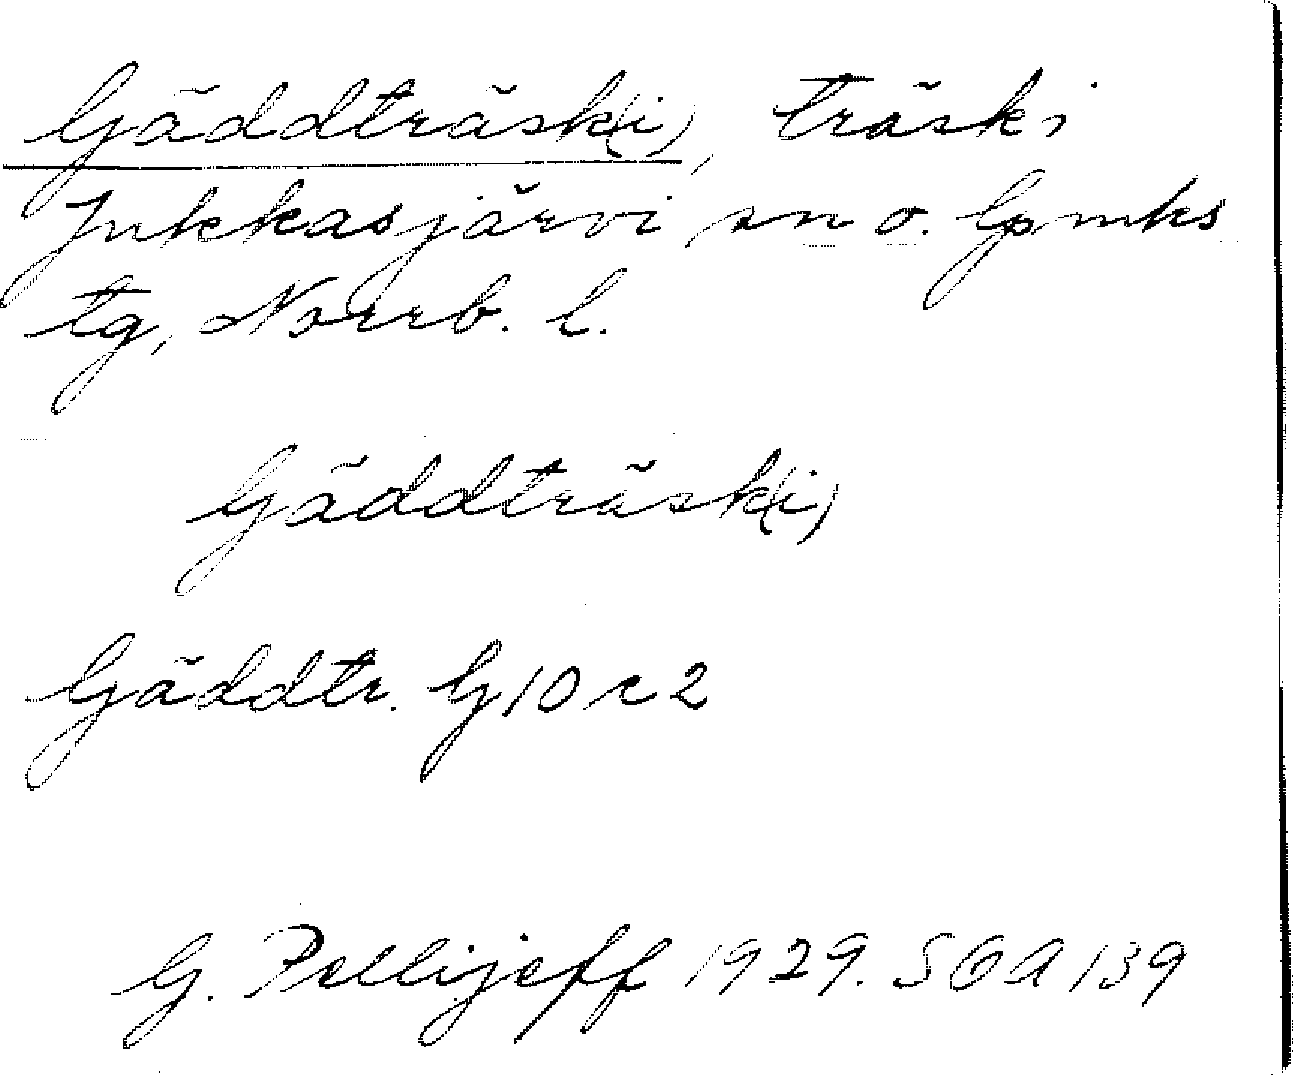 Gäddträsk(i), träsk i
Jukkasjärvi sn o. lpmks
tg, Norrb. l.
Gäddträsk(i)
Gäddtr. G10c2
G. Pellijeff 1929. SOA 139